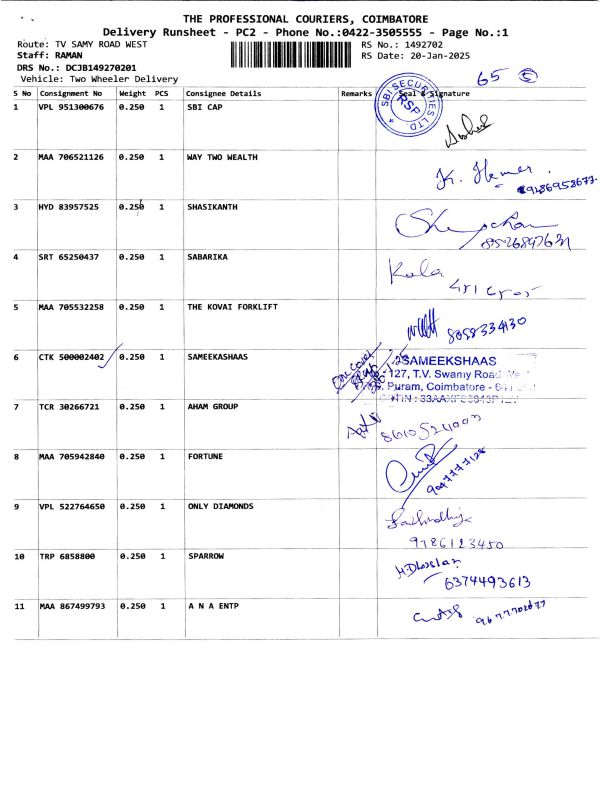 THE PROFESSIONAL COURIERS, COIMBATORE
Delivery Runsheet - PC2 - Phone No.:0422-3505555 - Page No.:1
Route: TV SAMY ROAD WEST RS No.: 1492702
Staff: RAMAN RS Date: 20-Jan-2025
DRS No.: DCJB149270201
Vehicle: Two Wheeler Delivery
65 5
S No Consignment No Weight PCS Consignee Details Remarks Seal & Signature
SBI SECURITIES LTD.
RSP
1 VPL 951300676 0.250 1 SBI CAP
2 MAA 706521126 0.250 1 WAY TWO WEALTH
K. Hemer.
3 HYD 83957525 0.250 1 SHASIKANTH
4 SRT 65250437 0.250 1 SABARIKA
Kala
5 MAA 705532258 0.250 1 THE KOVAI FORKLIFT
8058334130
6 CTK 500002402 0.250 1 SAMEEKSHAAS
SAMEEKSHAAS
127, T.V. Swamy Road
Puram, Coimbatore -
7 TCR 30266721 0.250 1 AHAM GROUP
8 MAA 705942840 0.250 1 FORTUNE
9047777128
9 VPL 522764650 0.250 1 ONLY DIAMONDS
9786123450
10 TRP 6858800 0.250 1 SPARROW
6374493613
11 MAA 867499793 0.250 1 A N A ENTP